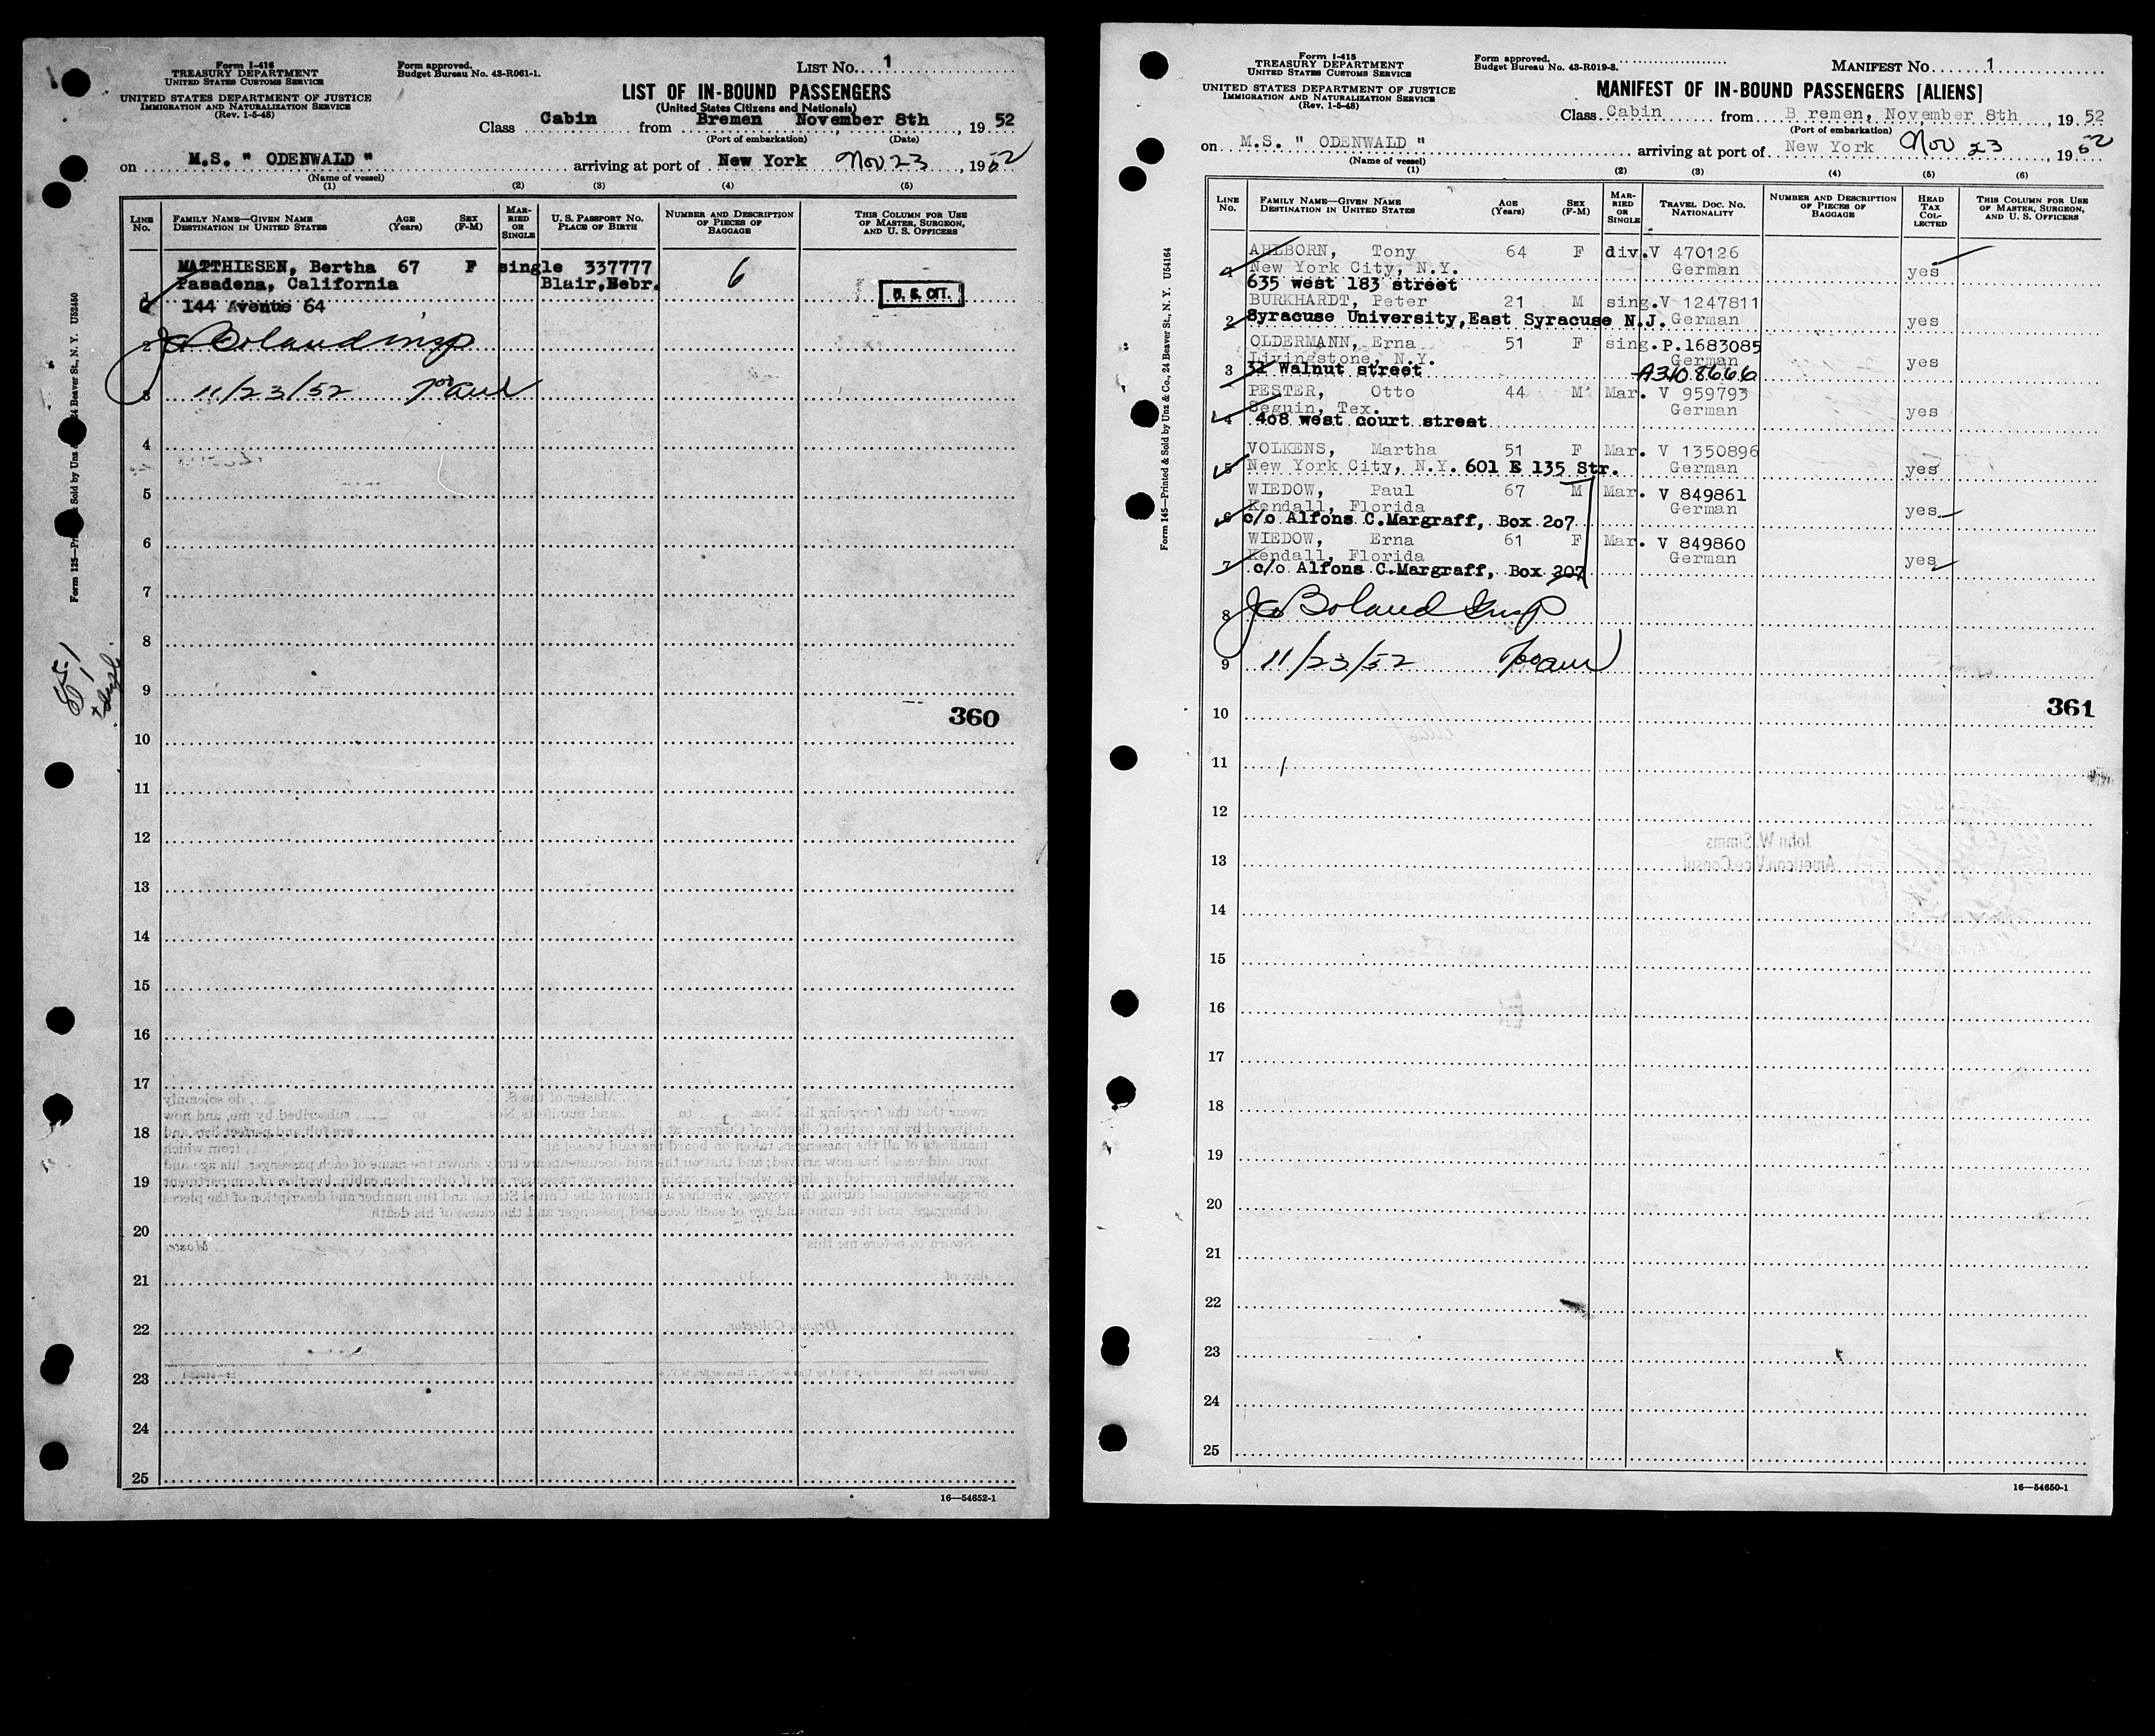 Form I-416
TREASURY DEPARTMENT
UNITED STATES CUSTOMS SERVICE
UNITED STATES DEPARTMENT OF JUSTICE
IMMIGRATION AND NATURALIZATION SERVICE
(Rev. 1-5-48)
Form approved.
Budget Bureau No. 43-R061-1.
LIST No. 1
LIST OF IN-BOUND PASSENGERS
(United States Citizens and Nationals)
Class Cabin from Bremen November 8th, 1952
(Port of embarkation) (Date)
on M.S. " ODENWALD " arriving at port of New York Nov 23, 1952
(Name of vessel)
(1) (2) (3) (4) (5)
LINE No. FAMILY NAME—GIVEN NAME DESTINATION IN UNITED STATES AGE (Years) SEX (F-M) MARRIED OR SINGLE U. S. PASSPORT NO. PLACE OF BIRTH NUMBER AND DESCRIPTION OF PIECES OF BAGGAGE THIS COLUMN FOR USE OF MASTER, SURGEON, AND U. S. OFFICERS
MATTHIESEN, Bertha 67 F single 337777 6
Pasadena, California Blair,Nebr.
1 144 Avenue 64 U. S. CIT.
2 Boland Insp
3 11/23/52
4
5
6
7
8
9
360
10
11
12
13
14
15
16
17
18
19
20
21
22
23
24
25
16—54652-1
Form 125—Printed & Sold by Unz & Co., 24 Beaver St., N. Y. U52450
Form I-415
TREASURY DEPARTMENT
UNITED STATES CUSTOMS SERVICE
UNITED STATES DEPARTMENT OF JUSTICE
IMMIGRATION AND NATURALIZATION SERVICE
(Rev. 1-5-48)
Form approved.
Budget Bureau No. 43-R019-3.
MANIFEST NO. 1
MANIFEST OF IN-BOUND PASSENGERS [ALIENS]
Class Cabin from B remen, November 8th, 1952
(Port of embarkation)
on M.S. " ODENWALD " arriving at port of New York Nov 23, 1952
(Name of vessel)
(1) (2) (3) (4) (5) (6)
LINE No. FAMILY NAME—GIVEN NAME DESTINATION IN UNITED STATES AGE (Years) SEX (F-M) MARRIED OR SINGLE TRAVEL DOC. NO. NATIONALITY NUMBER AND DESCRIPTION OF PIECES OF BAGGAGE HEAD TAX COLLECTED THIS COLUMN FOR USE OF MASTER, SURGEON, AND U. S. OFFICERS
AHLBORN, Tony 64 F div. V 470126
1 New York City, N.Y. German yes
635 west 183 street
BURKHARDT, Peter 21 M sing. V 1247811
2 Syracuse University,East Syracuse N.J. German yes
OLDERMANN, Erna 51 F sing. P.1683085
Livingstone, N.Y. German yes
3 31 Walnut street A3108666
PESTER, Otto 44 M Mar. V 959793
Seguin, Tex. German yes
4 408 west court street
VOLKENS, Martha 51 F Mar. V 1350896
5 New York City, N.Y. 601 E 135 Str. German yes
WIEDOW, Paul 67 M Mar. V 849861
Kendall, Florida German yes
6 c/o Alfons C.Margraff, Box 207
WIEDOW, Erna 61 F Mar. V 849860
Kendall, Florida German yes
7 c/o Alfons C.Margraff, Box 207
8 Boland Insp
9 11/23/52
10
361
11
12
John W. Simms
American Vice Consul
13
14
15
16
17
18
19
20
21
22
23
24
25
16—54650-1
Form 145—Printed & Sold by Unz & Co., 24 Beaver St., N. Y. U54164